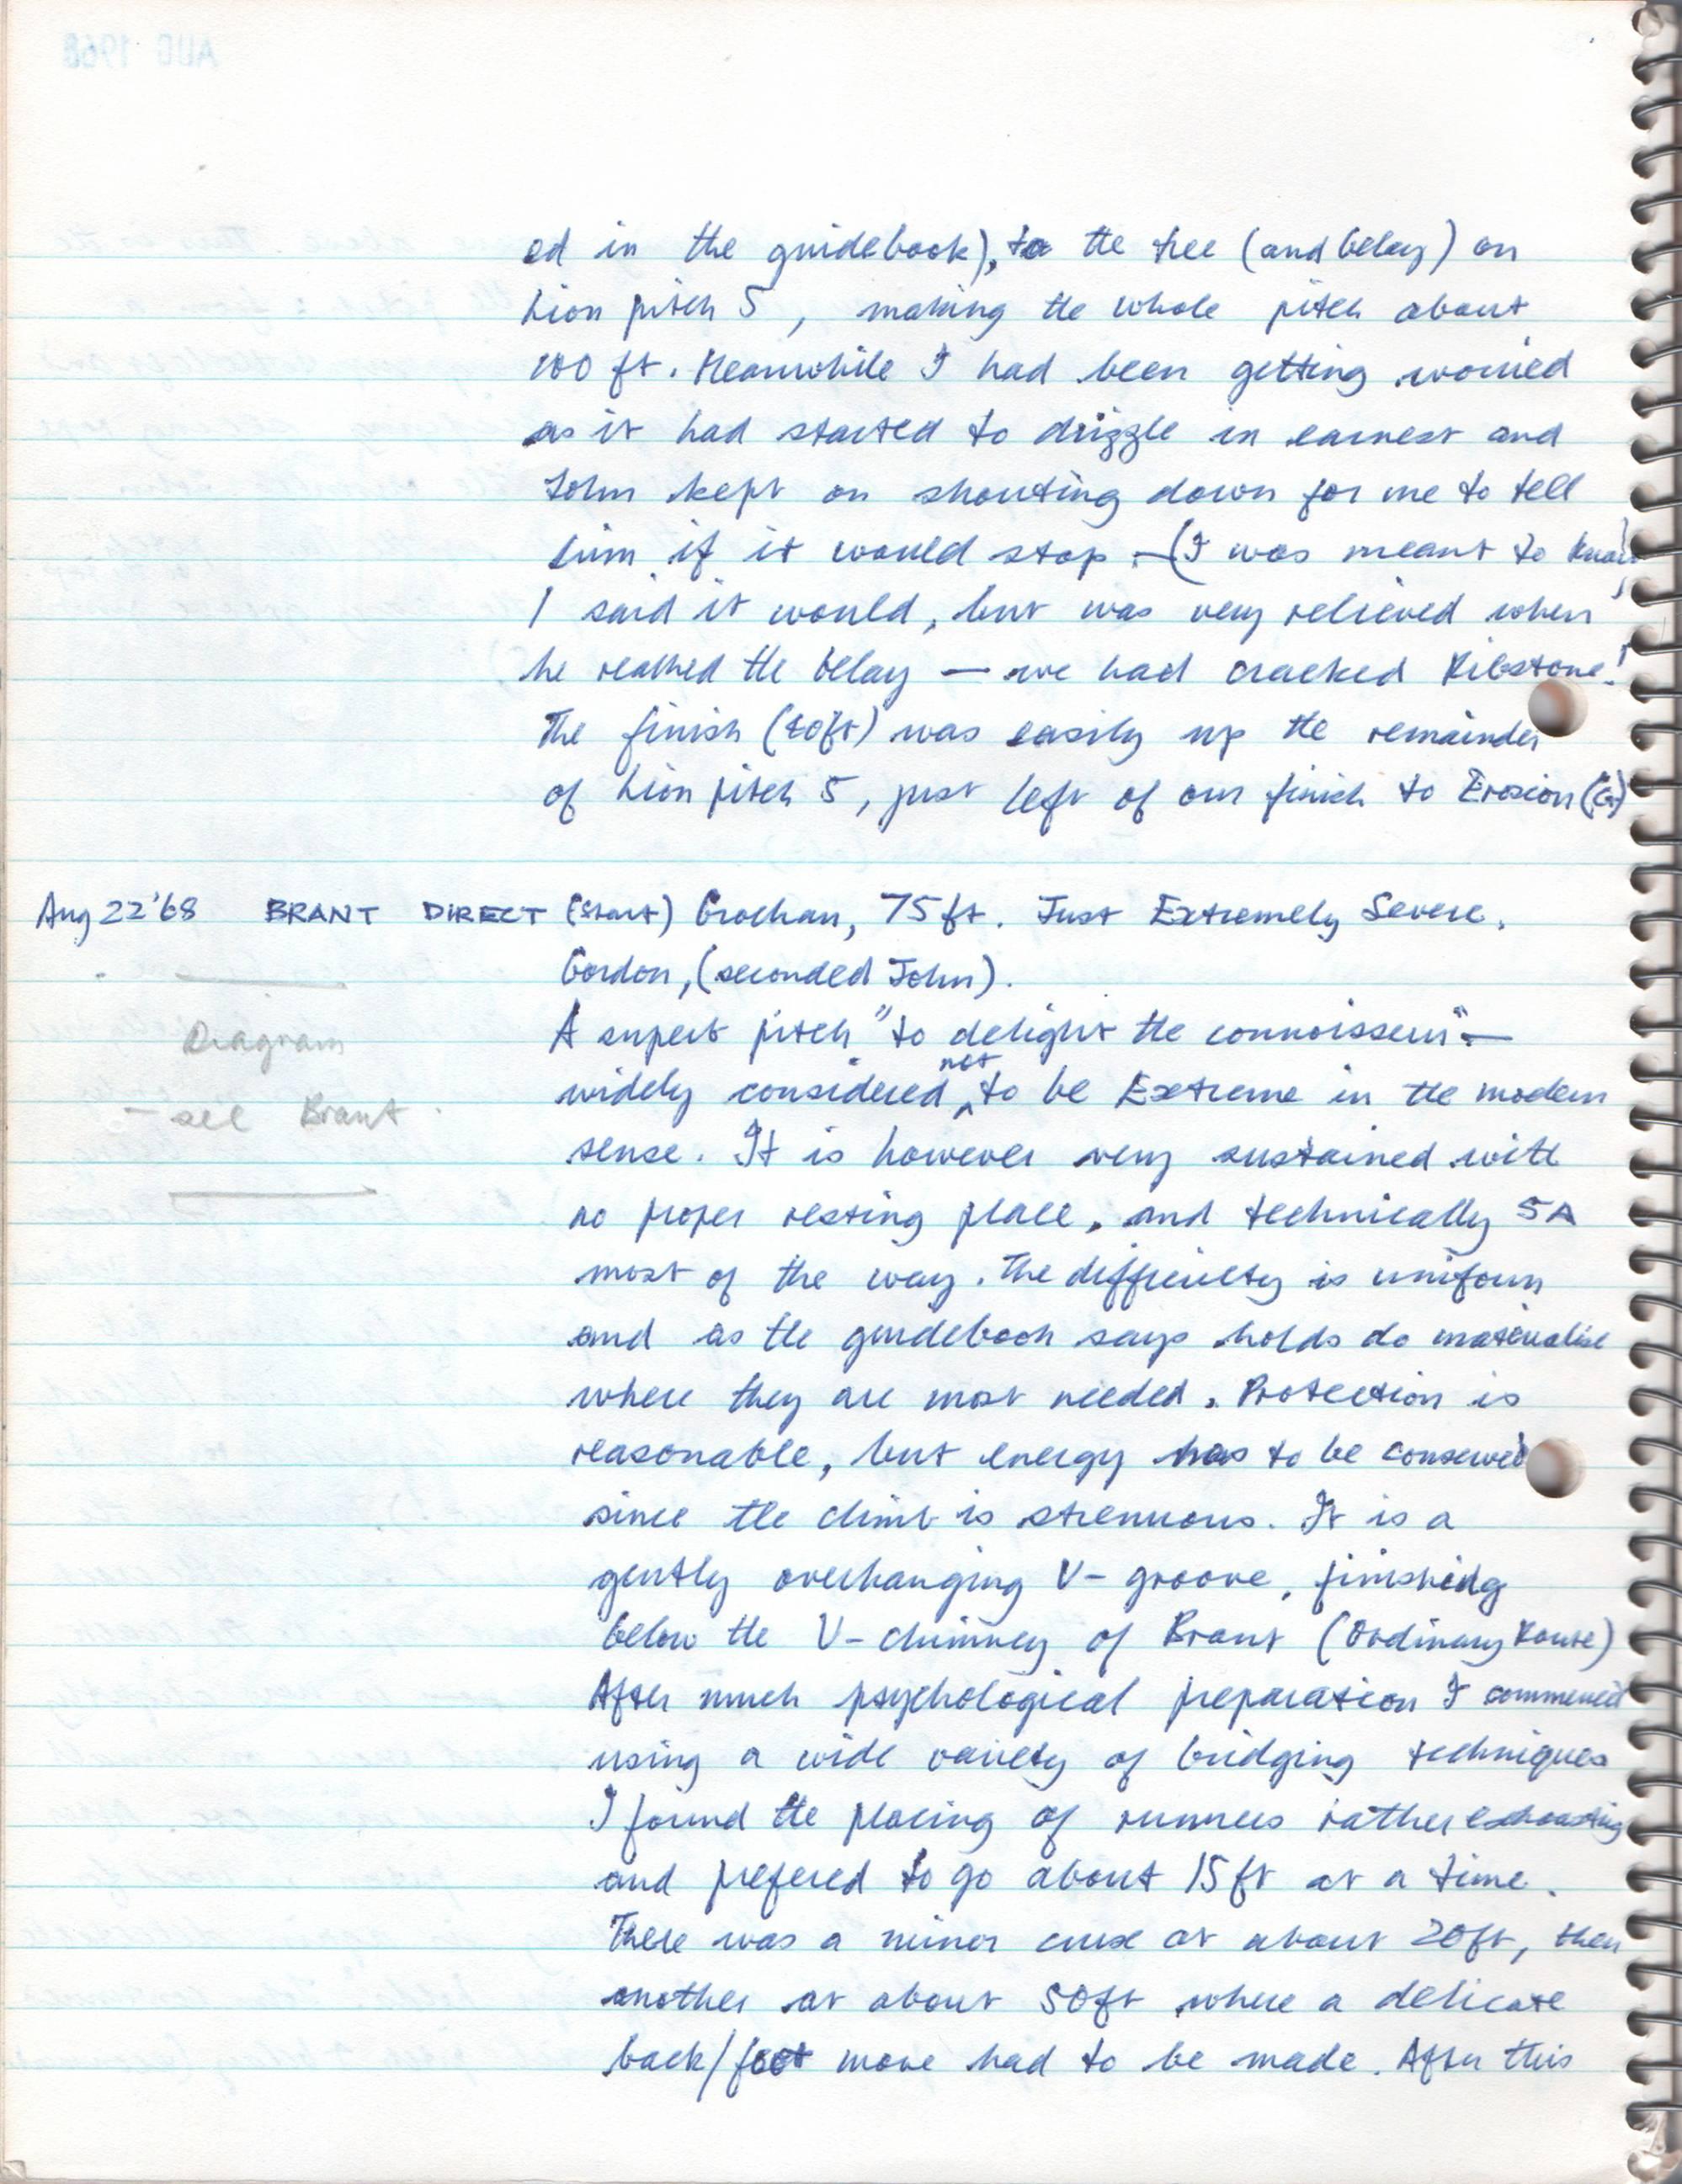 ed in the guidebook), to the tree (and belay) on
Lion pitch 5, making the whole pitch about
100 ft. Meanwhile I had been getting worried
as it had started to drizzle in earnest and
John kept on shouting down for me to tell
him if it would stop. - (I was meant to know)
I said it would, but was very relieved when
he reached the belay — we had cracked Ribstone!
The finish (40ft) was easily up the remainder
of Lion pitch 5, just left of our finish to Erosion (G)
Aug 22 '68 BRANT DIRECT (Start) Grochan, 75 ft. Just Extremely Severe.
Gordon, (seconded John).
A superb pitch "to delight the connoisseur" —
Diagram
widely considered not to be Extreme in the modern
— see Brant.
sense. It is however very sustained with
no proper resting place, and technically 5A
most of the way. The difficulty is uniform
and as the guidebook says holds do materialise
where they are most needed. Protection is
reasonable, but energy has to be conserved
since the climb is strenuous. It is a
gently overhanging V-groove, finishing
below the V-chimney of Brant (Ordinary Route)
After much psychological preparation I commenced
using a wide variety of bridging techniques
I found the placing of runners rather exhausting
and prefered to go about 15ft at a time.
There was a minor crux at about 20ft, then
another at about 50ft where a delicate
back/foot move had to be made. After this